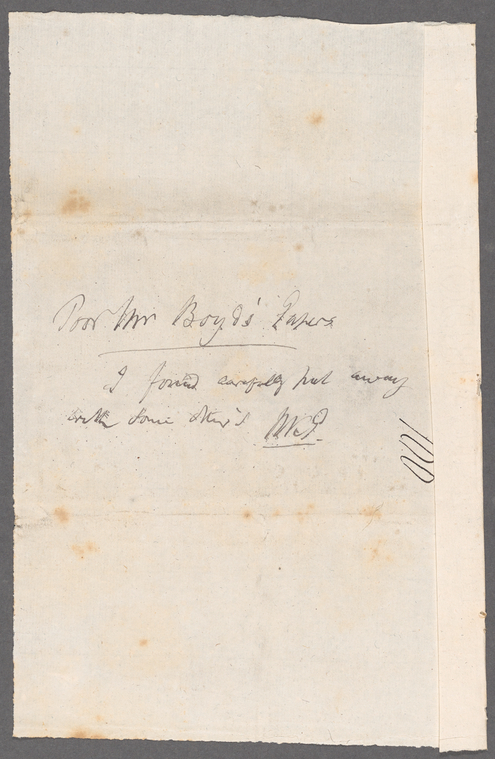 Poor Mr Boyd's Papers
I found carefully put away
with some other's
100